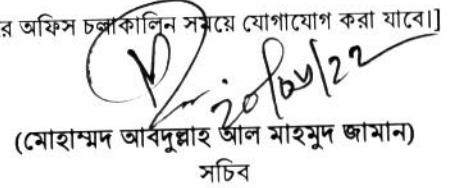 র অফিস চলাকালিন সময়ে যোগাযোগ করা যাবে।]
(মোহাম্মদ আবদুল্লাহ আল মাহমুদ জামান)
সচিব